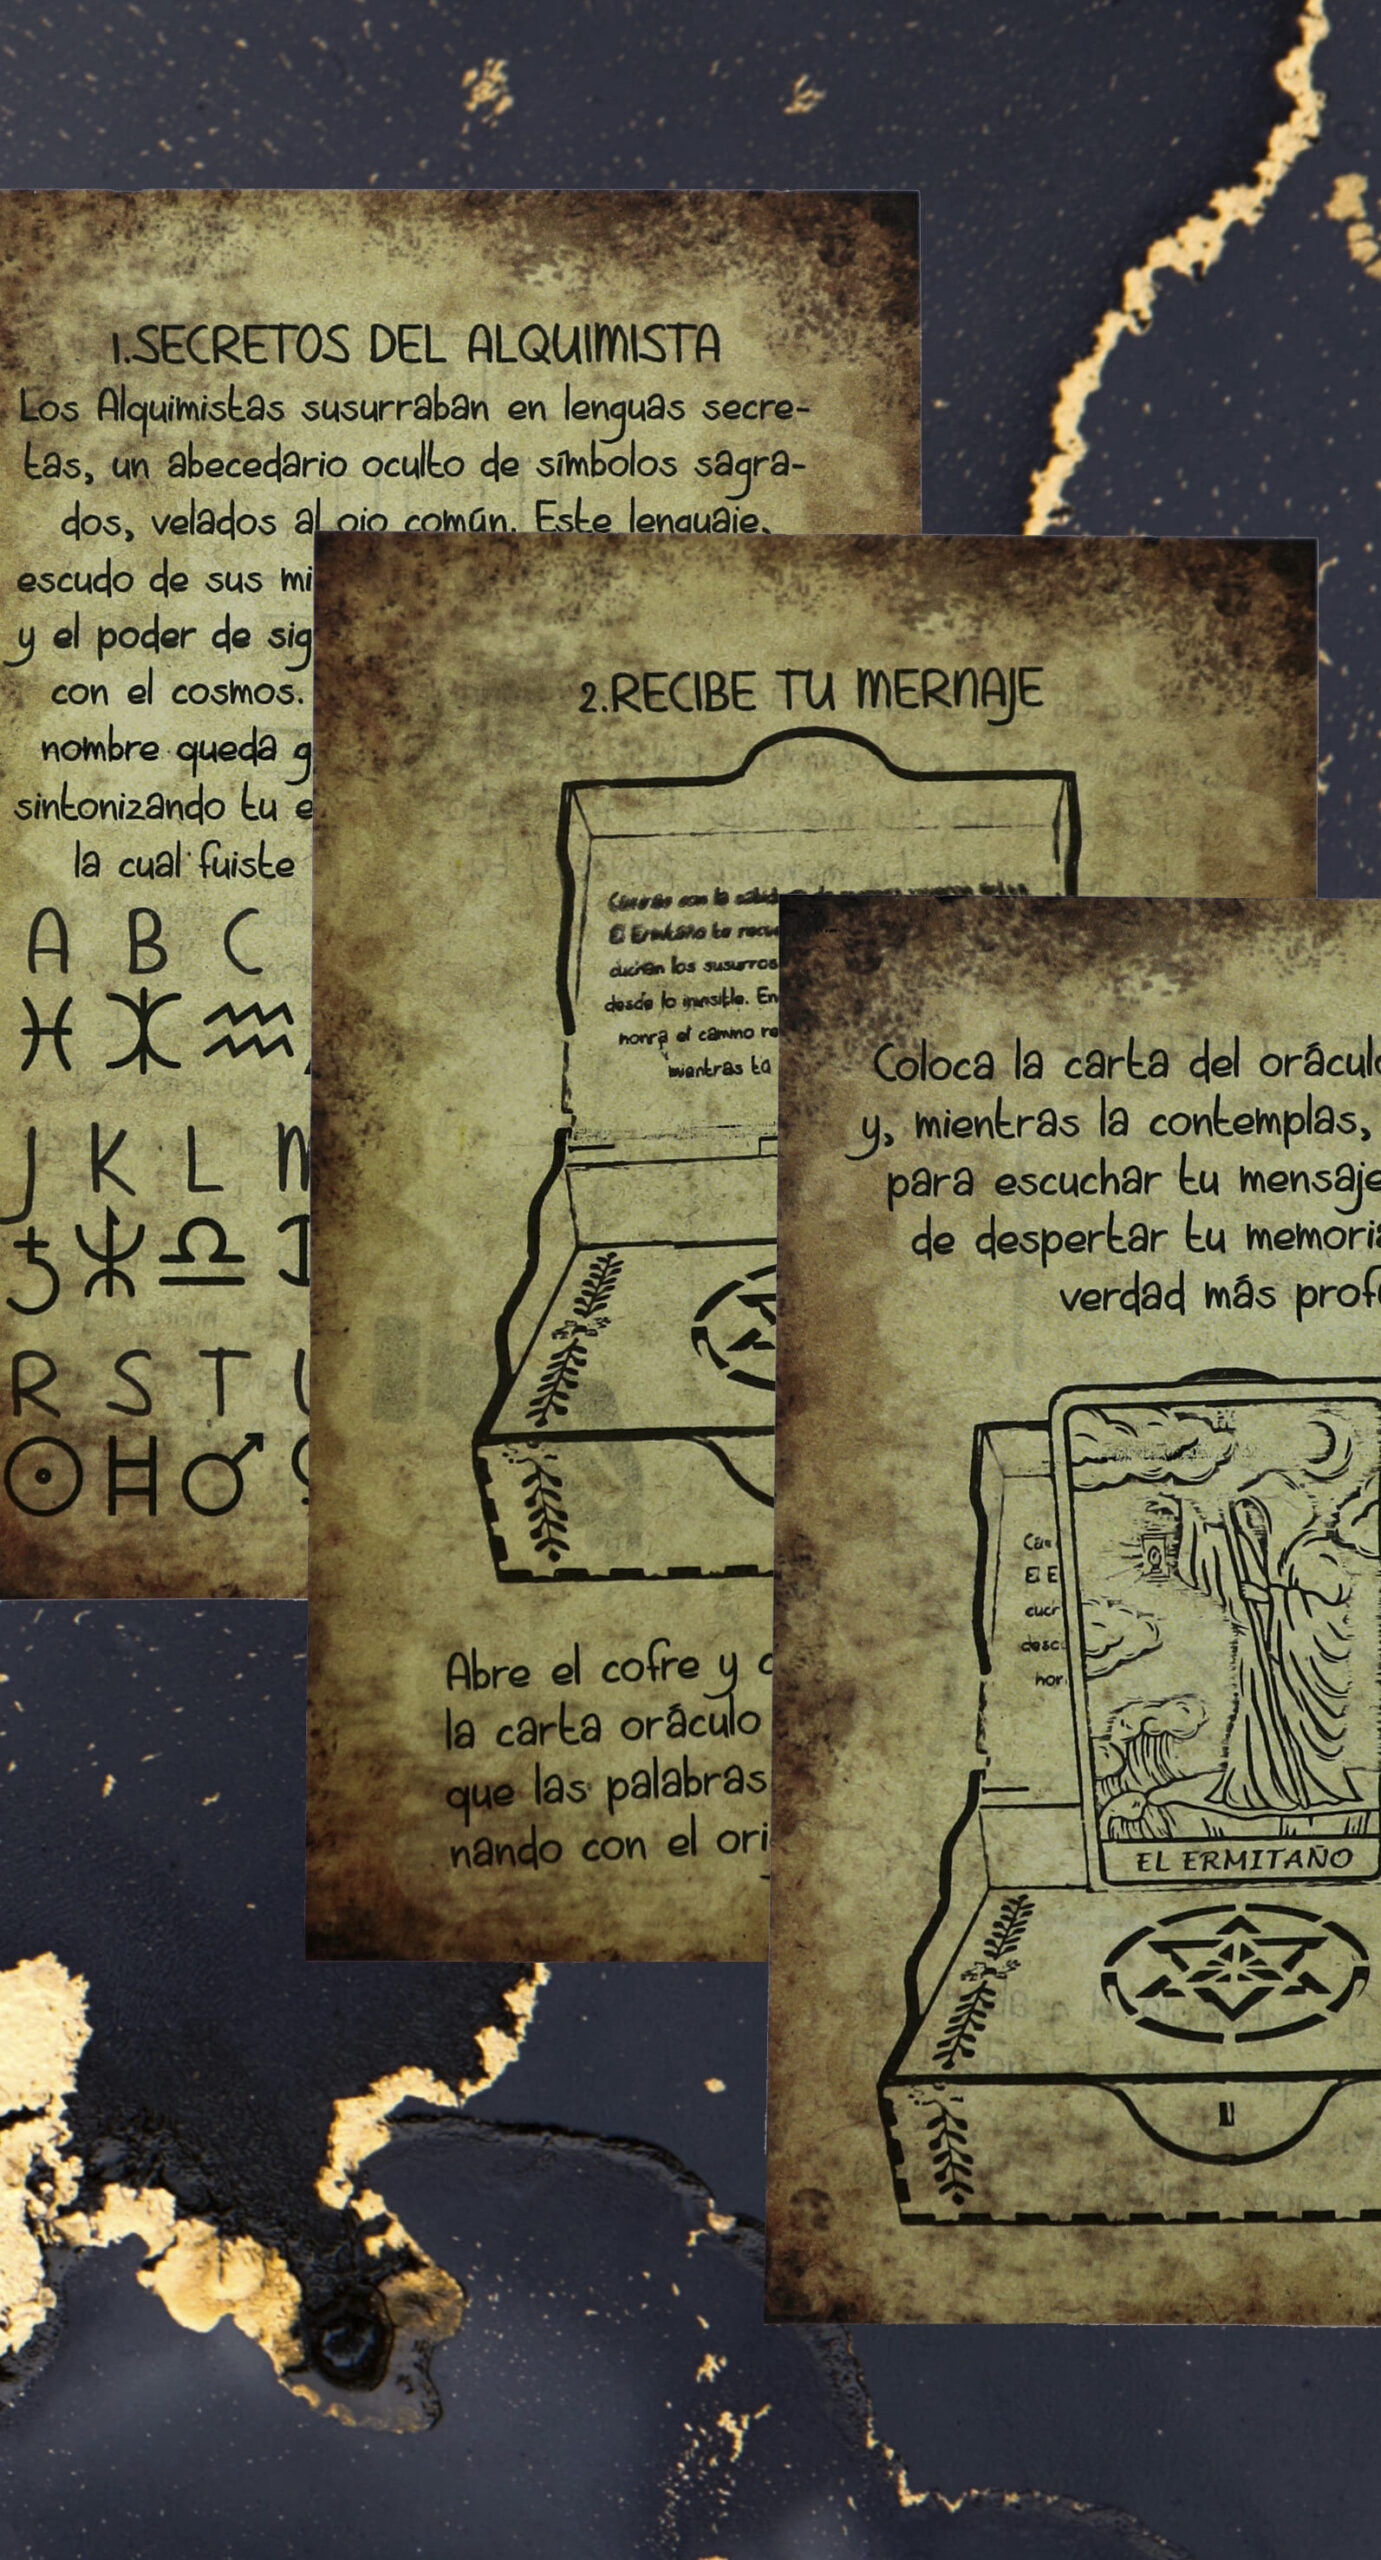 1.SECRETOS DEL ALQUIMISTA
Los Alquimistas susurraban en lenguas secre-
tas, un abecedario oculto de símbolos sagra-
dos, velados al ojo común. Este lenguaje,
escudo de sus mi
y el poder de sig
con el cosmos.
nombre queda g
sintonizando tu e
la cual fuiste
A B C
J K L M
R S T U
2.RECIBE TU MERNAJE
con la
El Ermitaño te recue
los susurros
desde lo invisible. En
honra el camino re
mientras tú
Abre el cofre y c
la carta oráculo
que las palabras
nando con el ori
Coloca la carta del oráculo
y, mientras la contemplas,
para escuchar tu mensaje
de despertar tu memoria
verdad más prof
El E
desc
hon
EL ERMITAÑO